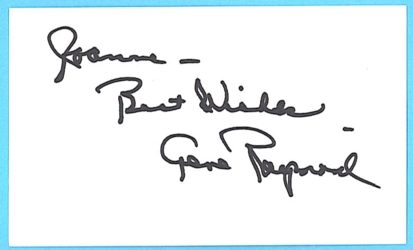 Joanne –
Best Wishes –
Gene Raymond